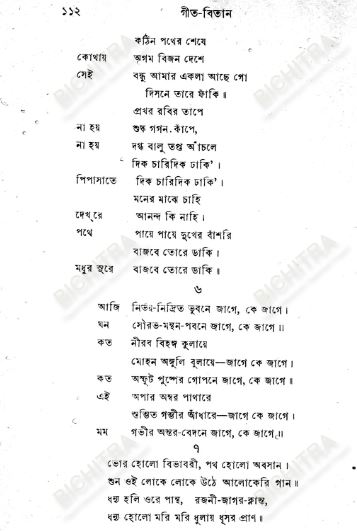 ১১২ গীত-বিতান
কঠিন পথের শেষে
কোথায় অগম বিজন দেশে
সেই বন্ধু আমার একলা আছে গো
দিসনে তারে ফাঁকি ॥
প্রখর রবির তাপে
না হয় শুষ্ক গগন কাঁপে,
না হয় দগ্ধ বালু তপ্ত আঁচলে
দিক চারিদিক ঢাকি'।
পিপাসাতে দিক চারিদিক ঢাকি'।
মনের মাঝে চাহি
দেখ্‌রে আনন্দ কি নাহি।
পথে পায়ে পায়ে দুখের বাঁশরি
বাজবে তোরে ডাকি।
মধুর সুরে বাজবে তোরে ডাকি ॥
৬
আজি নির্ভয়-নিদ্রিত ভুবনে জাগে, কে জাগে।
ঘন সৌরভ-মন্থন-পবনে জাগে, কে জাগে ॥
কত নীরব বিহঙ্গ কুলায়ে
মোহন অঙ্গুলি বুলায়ে—জাগে, কে জাগে।
কত অস্ফুট পুষ্পের গোপনে জাগে, কে জাগে ॥
এই অপার অম্বর পাথারে
স্তম্ভিত গম্ভীর আঁধারে—জাগে, কে জাগে।
মম গভীর অন্তর-বেদনে জাগে, কে জাগে ॥
৭
ভোর হোলো বিভাবরী, পথ হোলো অবসান।
শুন ওই লোকে লোকে উঠে আলোকেরি গান ॥
ধন্য হলি ওরে পান্থ, রজনী-জাগর-ক্লান্ত,
ধন্য হোলো মরি মরি ধুলায় ধূসর প্রাণ ॥
BICHITRA